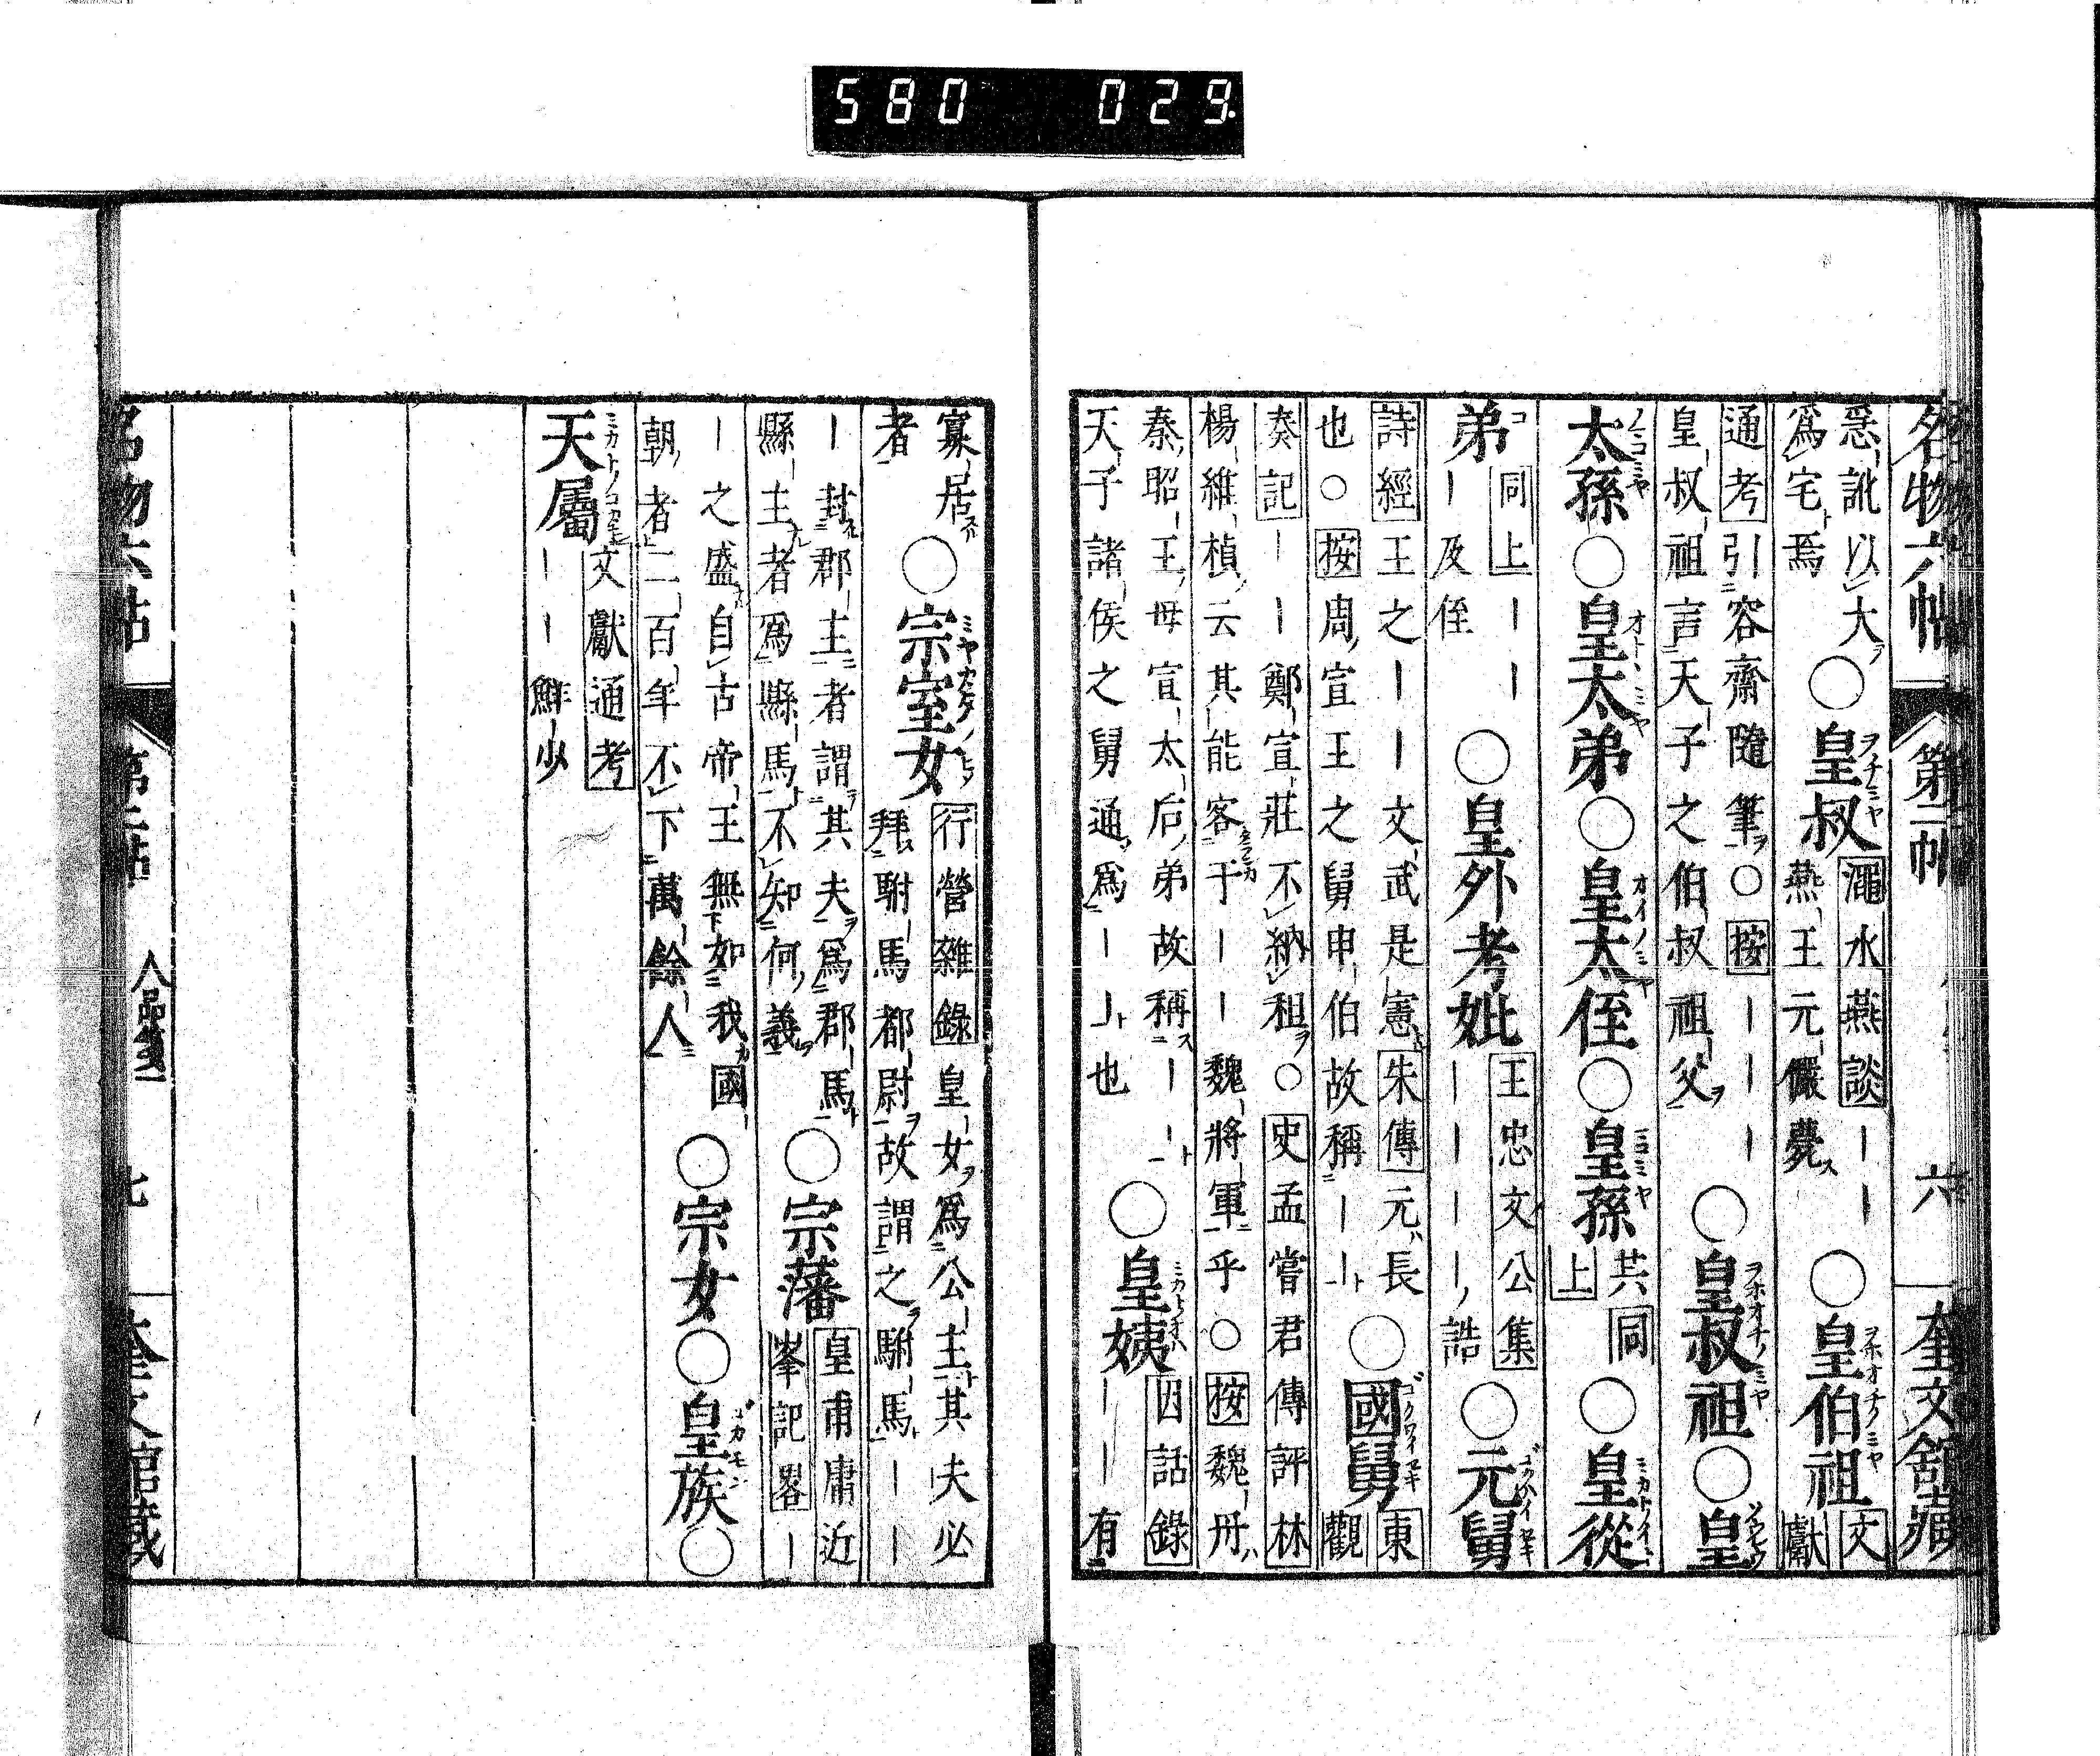 580 029.
名物六帖 第二帖 六 奎文館藏
惡訛以大○皇叔澠水燕談――○皇伯祖文
爲宅焉 燕王元儼薨 獻
通考引容齋隨筆○按―――○皇叔祖○皇
皇叔祖言天子之伯叔祖父
太孫○皇太弟○皇太侄○皇孫共同上○皇從
弟同上―――
―及侄○皇外考妣王忠文公集――――誥○元舅
詩經王之――文武是憲朱傳元長
也○按周宣王之舅申伯故稱――○國舅東觀
奏記――鄭宣莊不納租○史孟嘗君傳評林
楊維楨云其能客于――魏將軍乎○按魏冉
秦昭王母宣太后弟故稱――
天子諸侯之舅通爲――也○皇姨因話錄――有
寡居者○宗室女行營雜錄皇女爲公主其夫必
拜駙馬都尉故謂之駙馬――
―封郡主者謂其夫爲郡馬
縣主者爲縣馬不知何義○宗藩皇甫庸近峯記畧―
―之盛自古帝王無如我國
朝者二百年不下萬餘人○宗女○皇族○
天屬文獻通考――鮮少
名物六帖 第二帖 人品箋一 七 奎文館藏